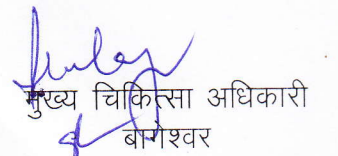 मुख्य चिकित्सा अधिकारी
बागेश्वर